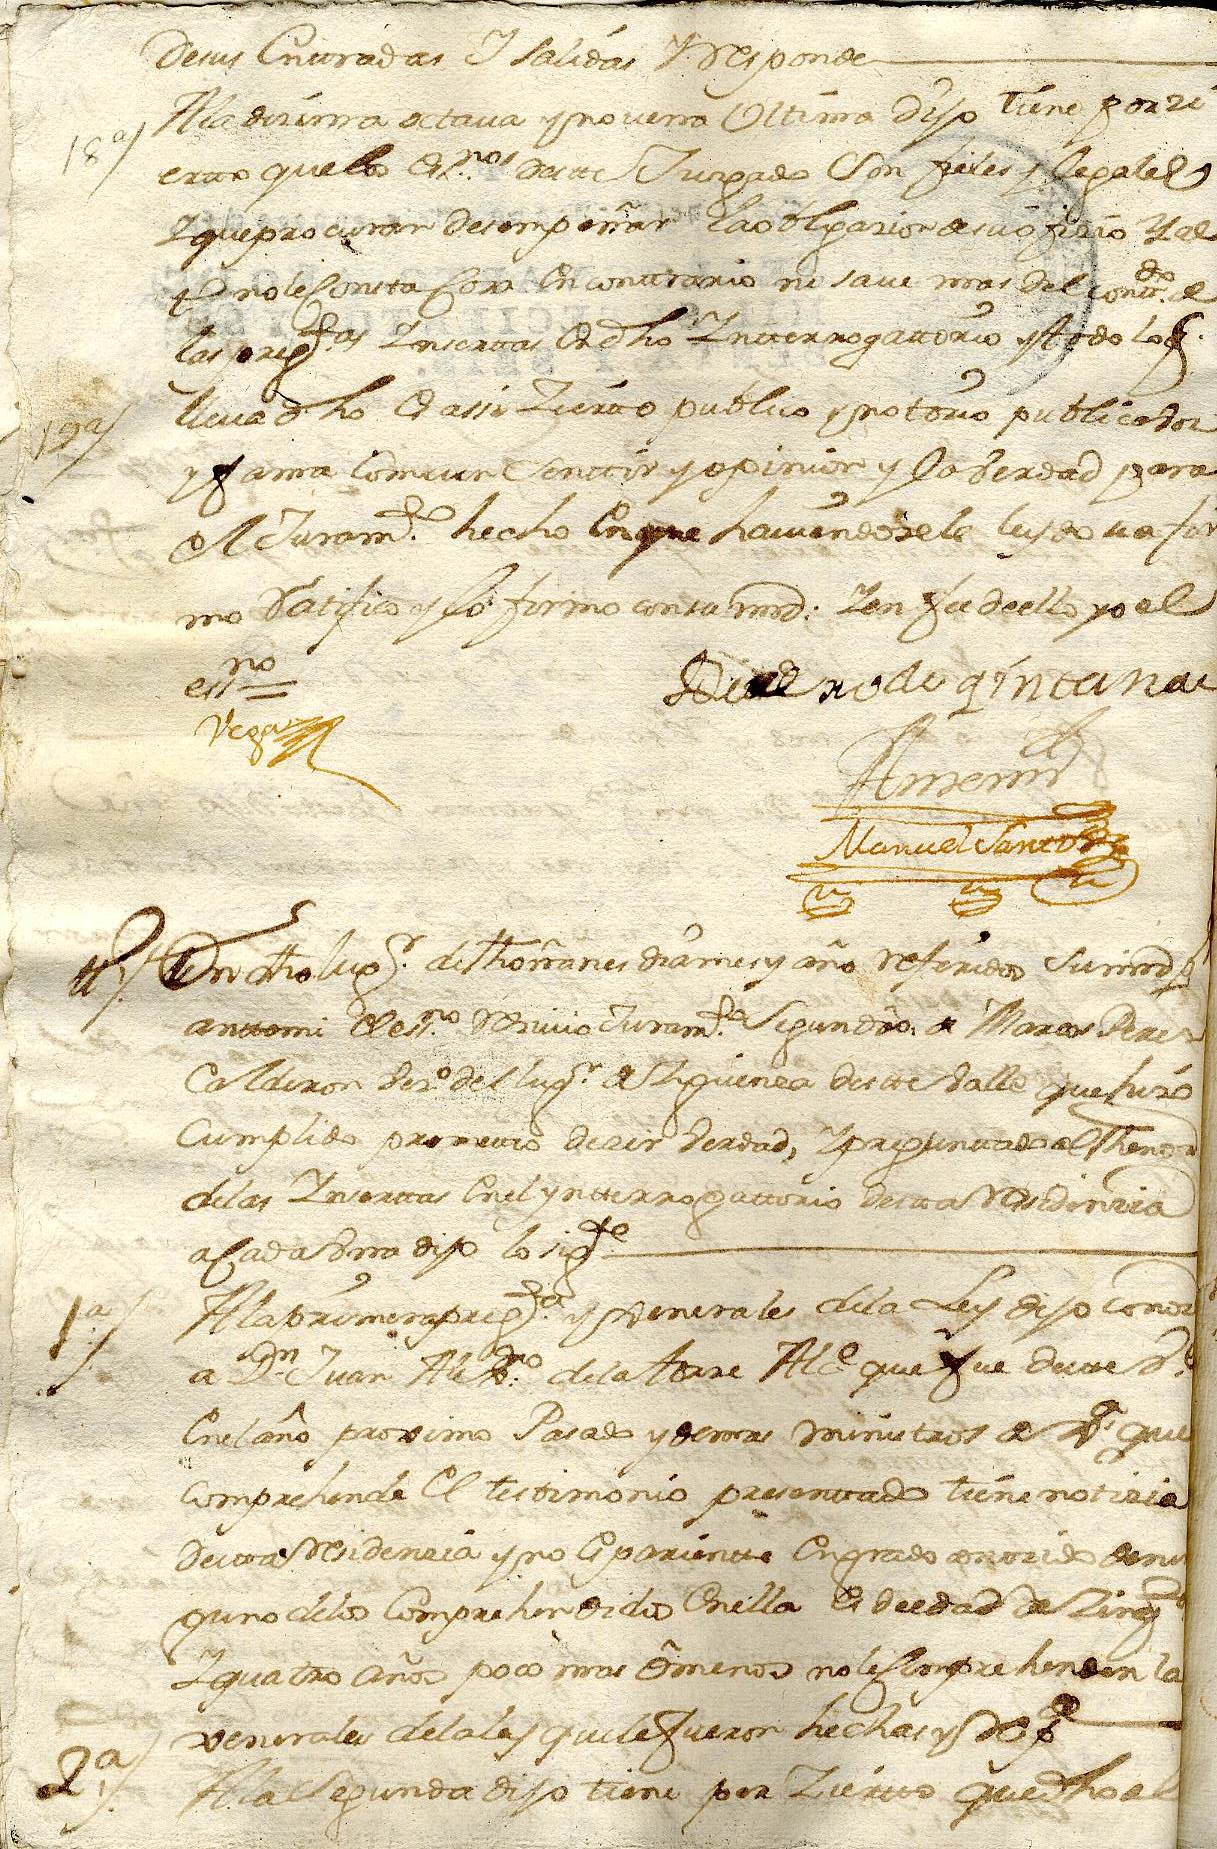 Desus Entradas Y salidas Y Responde
18ª) Ala dezima octaua y novena Ultima dijo tiene por zi
ertto que los es.nos deste Juzgado son fieles y legales
Y que procuran desempeñar la obligazion de su ofizio Y al
tgo no le Consta Cosa En contrario ni saue mas del contdo. de
las pregtas Insertas En dho Intterrogattorio y todo lo q.
19ª) lleua dho Es assi Ziertto publico y nottorio publica voz
y fama Comun senttir y opinion y la Verdad para
el Juramto. hecho En que hauiendosele leydo se afir
mo Ratifico y lo firmo con su mrd: Y en fee de ello yo el
essno
Vega
de quintana
Antemi
Manuel Santos
tº) En dho lugr. de Thoranes dia mes y año Referidos su mrd
anttemi el essno Rezivio Juramto. Segun dro. de Marcos Perez
Calderon vezº del lugr. de Siguenza deste Valle que Juro
Cumplido promettio dezir Verdad, Y preguntado al Thenor
de las Insertas En el yntterrogattorio desta Residenzia
a Cada Una dijo lo sigte
1ª) Ala primera pregta. y Generales de la Ley dijo Conoze
a Dn Juan de la Torre Alce que fue deste Ve
En el año proximo Pasado y demas ministros de Rl que
Comprehende El testimonio presentado tiene notizia
desta Residenzia y no Es pariente En grado conozido de nin
guno de los Comprehendidos En ella Es de edad de Zinqta
Y quatro años poco mas o menos no le Comprehenden las
Generales de la ley que le fueron hechas y Rde
2ª) Ala Segunda dijo tiene por Ziertto que dho al